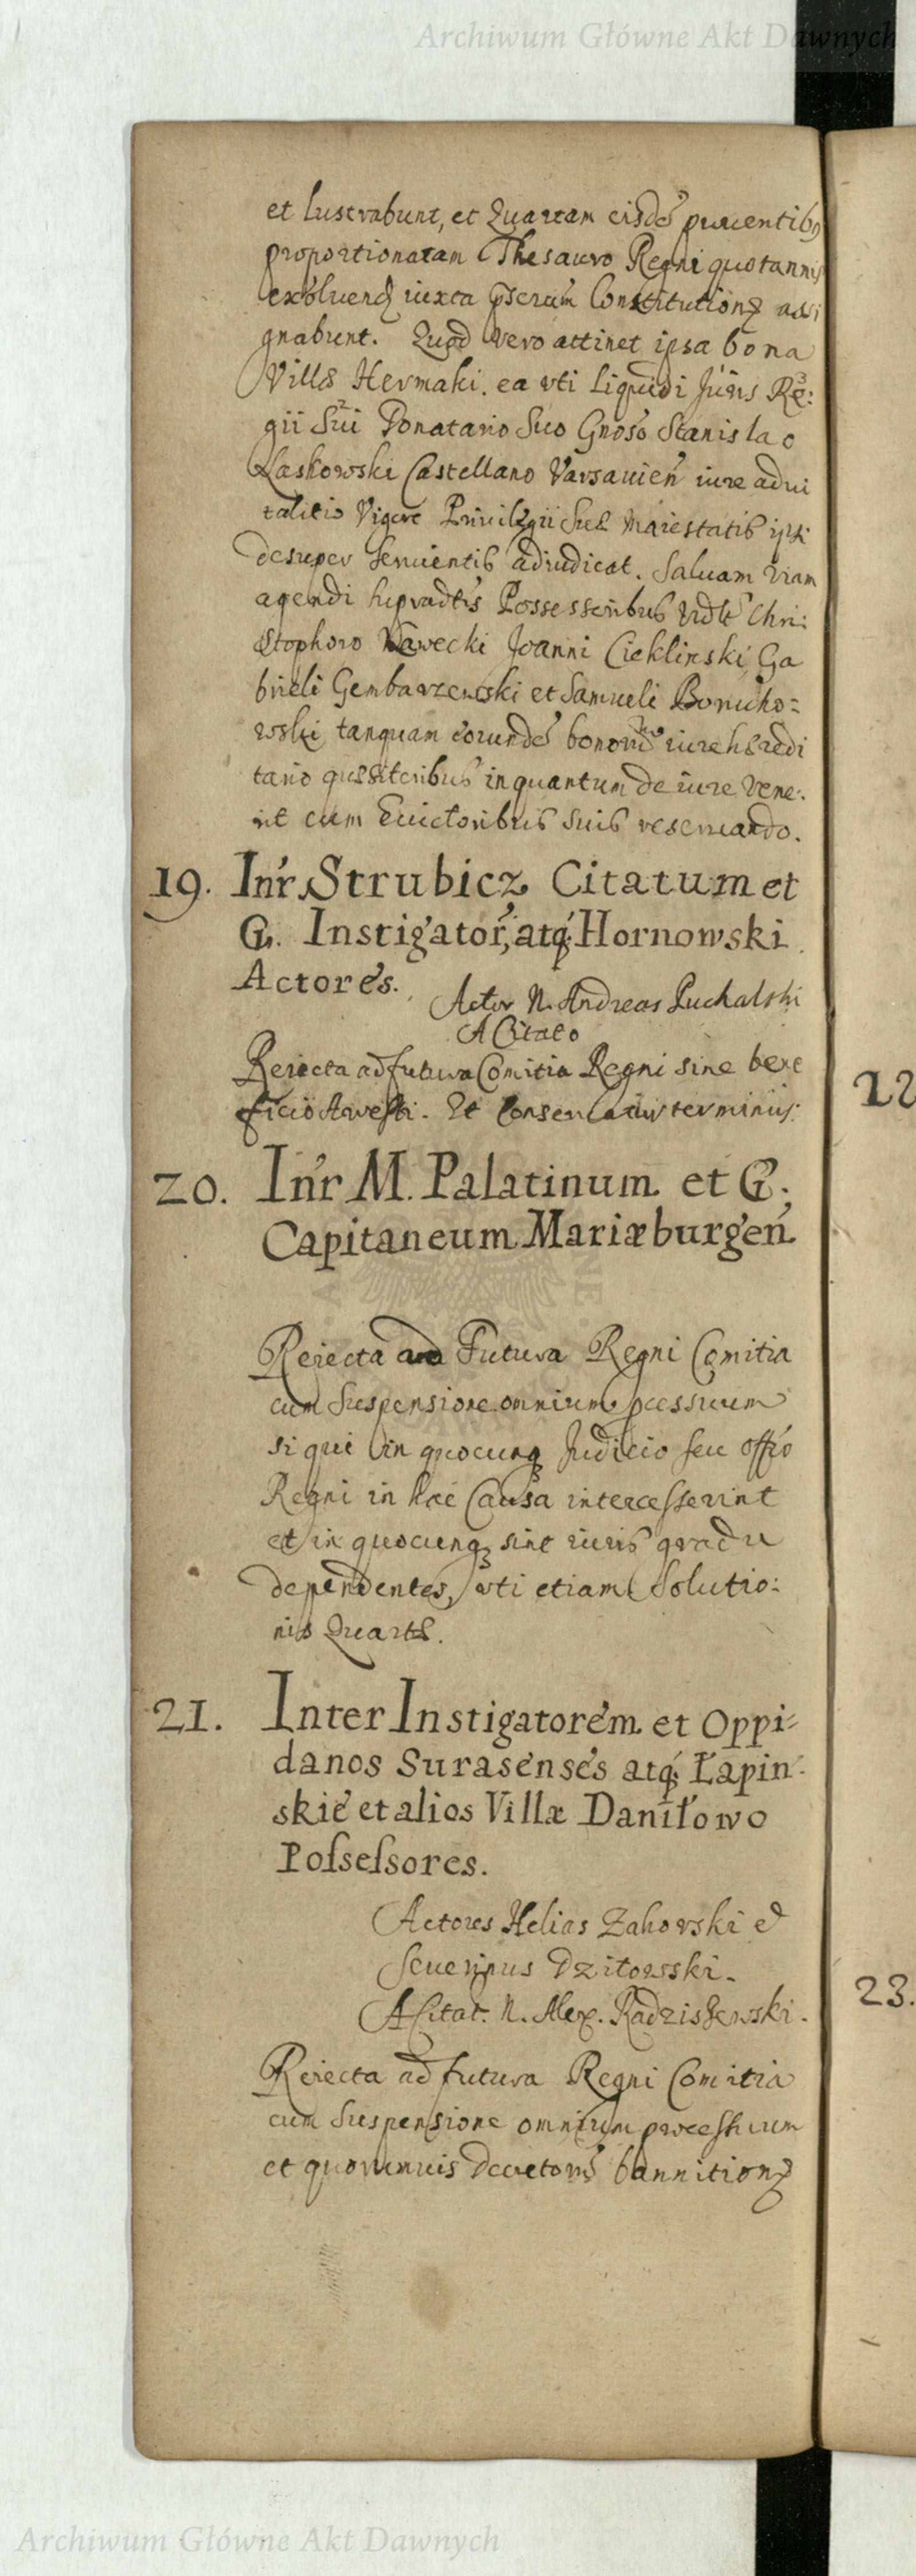 Archiwum Główne Akt Dawnych
et lustrabunt, et Quartam eisdē provenetibꝫ
proportionatam Thesauro Regni quotannis
exolvendꝫ iuxta pserum Constitutionꝫ assi
gnabunt. Quod vero attinet ipsa bona
Villæ Hermaki. ea uti Liquidi Juris Re:
gii Sui Donatario Suo Gnoso Stanislao
Laskowski Castellano Varsavień iure advi
talitio Vigore Privilegii Suæ Maiestatis ipsi
desuper servientis adiudicat. Salvam viam
agendi supradtis Possessoribus vidlt Chri:
stophoro Wawecki Joanni Cieklinski Ga
brieli Gembarzewski et Samueli Boruho:
wski tanquam eorundē bonorū iure hæredi
tario quæsitoribus inquantum de iure vene:
rit cum Evictoribus suis reservando.
19. Inr Strubicz Citatum et
G. Instigator, atq́ Hornowski
Actores.
Actor N. Andreas Puchalski
A Citato
Reiecta ad futura Comitia Regni sine bene
ficio Aresti. Et conservatur terminus.
20. Inr M. Palatinum et G.
Capitaneum Mariæburgeń
Reiecta ad Futura Regni Comitia
cum Suspensione omnium pcessuum
si qui in quocunq Judicio seu offo
Regni in hac Causa intercesserint
et in quocunq sint iuris gradu
dependentes, uti etiam Solutio:
nis Quartæ.
21. Inter Instigatorem et Oppi-
danos Surasenses atq́ Łapin-
skie et alios Villæ Daniłowo
Poſseſsores.
Actores Helias Zahorski et
Severinus Dzitowski.
A Citat. N. Alex. Radziszewski.
Reiecta ad futura Regni Comitia
cum Suspensione omnium processuum
et quorumvis Decretorū bannitionꝫ
23.
Archiwum Główne Akt Dawnych